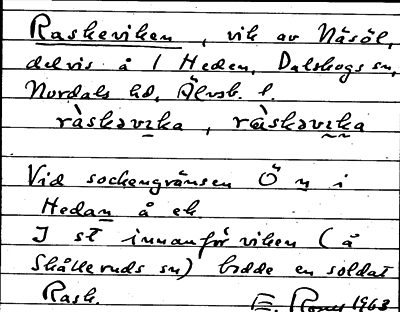 Raskeviken, vik av Näsöl,
delvis å 1 Heden, Dalskogs sn,
Nordals hd, Älvsb. l.
ràskəvɪka, ràskəvɪka
Vid sockengränsen Ö n i
Hedan å ek.
I st innanför viken (å
Skålleruds sn) bodde en soldat
Rask.
E. 1963